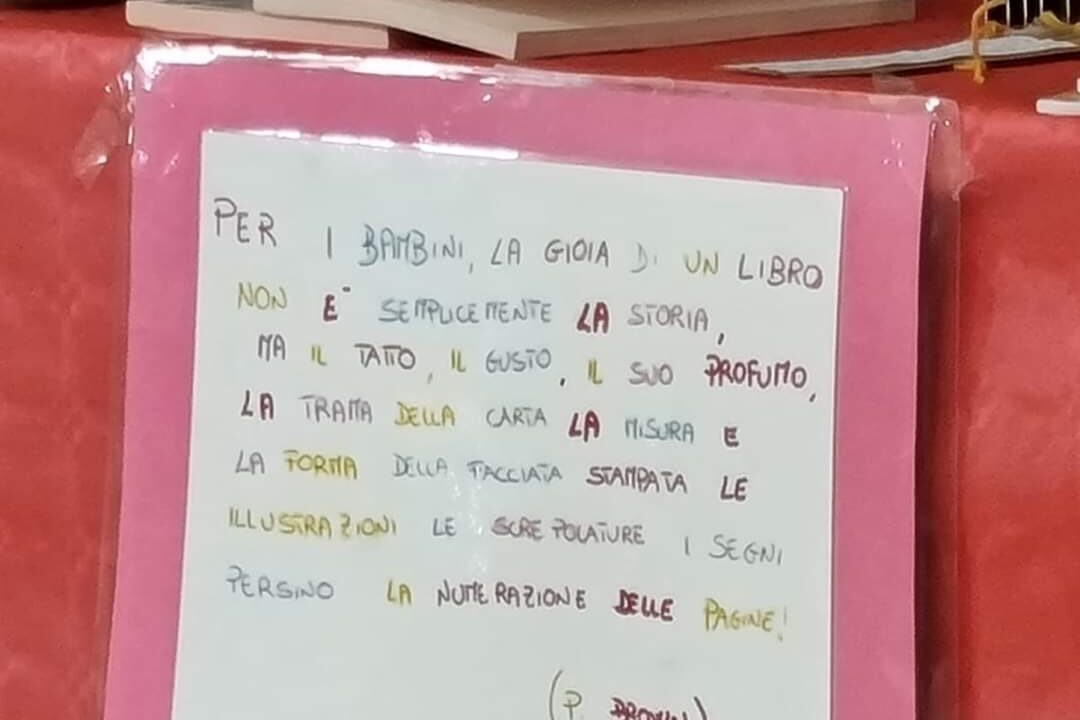 PER I BAMBINI, LA GIOIA DI UN LIBRO
NON E' SEMPLICEMENTE LA STORIA,
MA IL TATTO, IL GUSTO, IL SUO PROFUMO,
LA TRAMA DELLA CARTA LA MISURA E
LA FORMA DELLA FACCIATA STAMPATA LE
ILLUSTRAZIONI LE SCREPOLATURE I SEGNI
PERSINO LA NUMERAZIONE DELLE PAGINE!
(P.